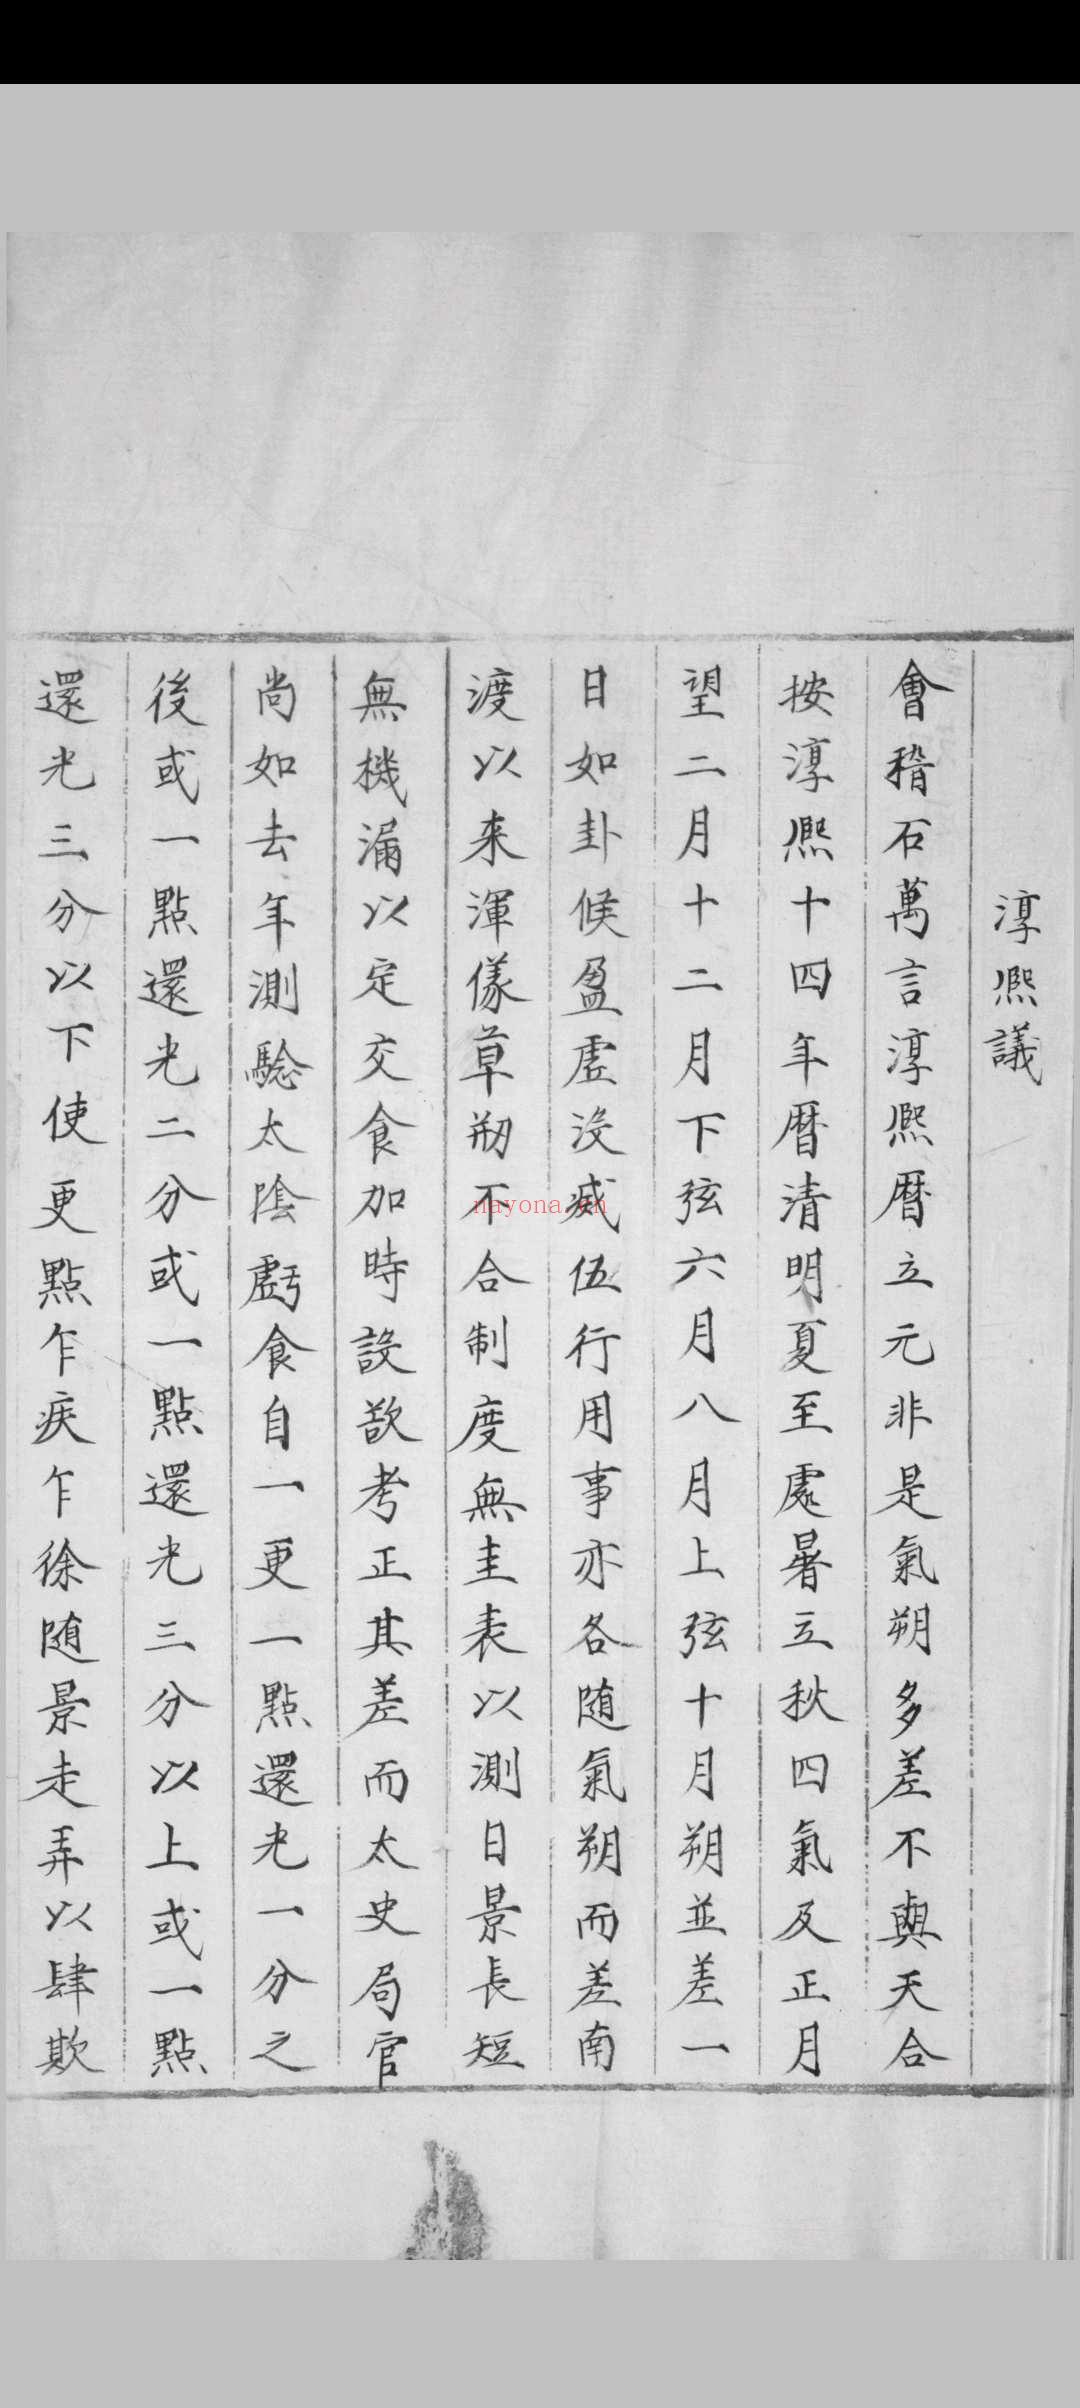 淳熙議
會稽石萬言淳熙暦立元非是氣朔多差不與天合
按淳熙十四年暦清明夏至處暑立秋四氣及正月
望二月十二月下弦六月八月上弦十月朔並差一
日如卦候盈虚没滅伍行用事亦各随氣朔而差南
渡以来渾儀草剏不合制度無圭表以測日景長短
無機漏以定交食加時設欲考正其差而太史局官
尚如去年測驗太陰虧食自一更一點還光一分之
後或一點還光二分或一點還光三分以上或一點
還光三分以下使更點乍疾乍徐随景走弄以肆欺
nayona.cn